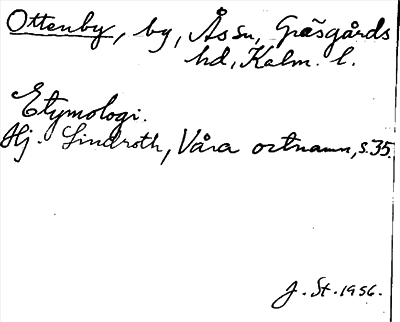 Ottenby, by, Ås sn, Gräsgårds
hd, Kalm. l.
Etymologi.
Hj. Lindroth, Våra ortnamn, s. 35.
J. St. 1956.